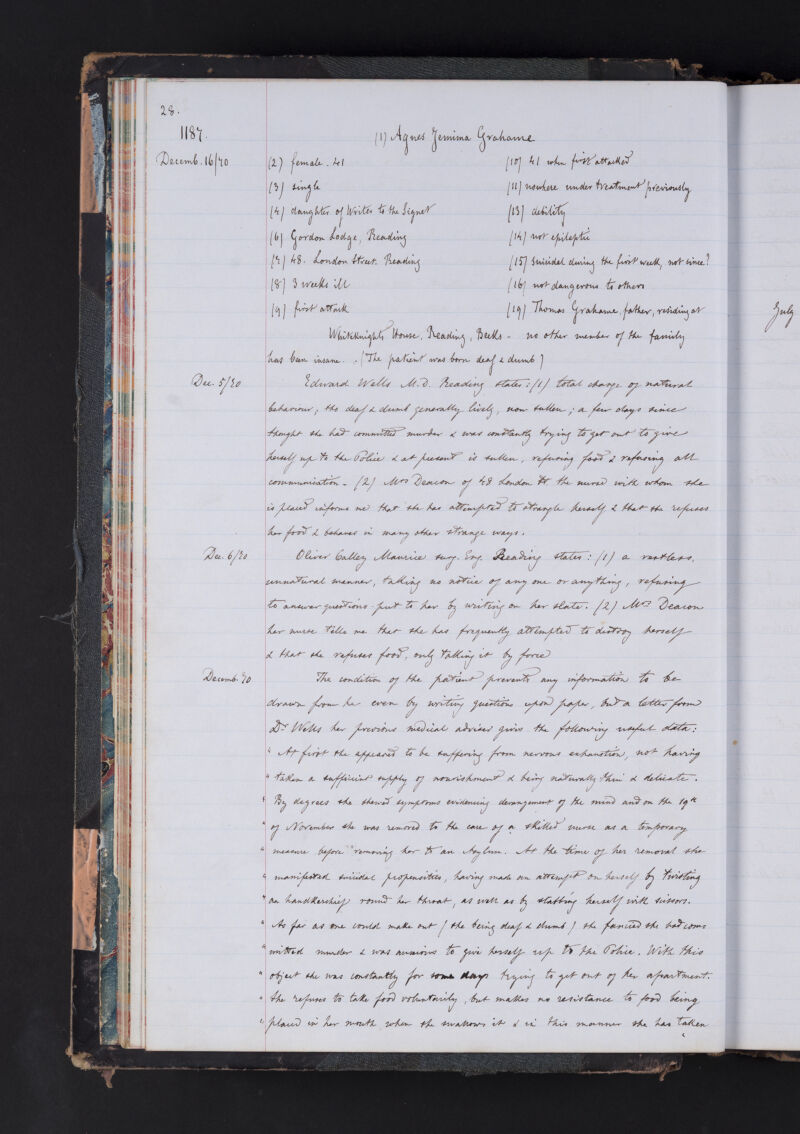 28.
1187. (1) Agnes Jemima Grahame
Decemb. 16/70 (2) female . 41 (10) 41 when first attacked
(3) single (11) nowhere under treatment previously
(4) daughter of Writer to the Signet (13) debility
(6) Gordon Lodge, Reading (14) not epileptic
(7) 48. London Street. Reading (15) suicidal during the first week, not since?
(8) 3 weeks ill (16) not dangerous to others
(9) first attack (19) Thomas Grahame, father, residing at
July
Whiteknights House, Reading, Berks - no other member of the family
has been insane. . (The patient was born deaf & dumb)
Dec. 5/70 Edward Wells M.D. Reading states: (1) total change of natural
behaviour; tho deaf & dumb generally lively, now sullen; a few days since
thought she had committed murder & was constantly trying to get out to give
herself up to the Police & at present is sullen, refusing food & refusing all
communication - (2) Mrs Deacon of 48 London St the nurse with whom she
is placed informs me that she has attempted to strangle herself & that she refuses
her food & behaves in many other strange ways.
Dec. 6/70 Oliver Calley Maurice surg. Esq Reading states: (1) a restless,
unnatural manner, taking no notice of any one or anything, refusing
to answer questions put to her by writing on her slate. (2) Mrs Deacon
her nurse tells me that she has frequently attempted to destroy herself
& that she refuses food, only taking it by force
Decemb. 70 The condition of the patient prevents any information to be
drawn from he even by writing questions upon paper, but a letter from
Dr Wells her previous medical adviser gives the following useful data:
" At first she appeared to be suffering from nervous exhaustion, not having
" taken a sufficient supply of nourishment & being naturally thin & delicate.
" By degrees she shewed symptoms evidencing derangement of the mind and on the 19th
" of November she was removed to the care of a skilled nurse as a temporary
" measure before removing her to an Asylum. At the time of her removal she
" manifested suicidal propensities, having made an attempt on herself by twisting
" an handkerchief round her throat, as well as by stabbing herself with scissors.
" As far as one could make out (she being deaf & dumb) she fancied she had com
" mitted murder & was anxious to give herself up to the Police. With this
" object she was constantly for some days trying to get out of her apartment.
" She refuses to take food voluntarily, but makes no resistance to food being
" placed in her mouth when she swallows it & in this manner she has taken